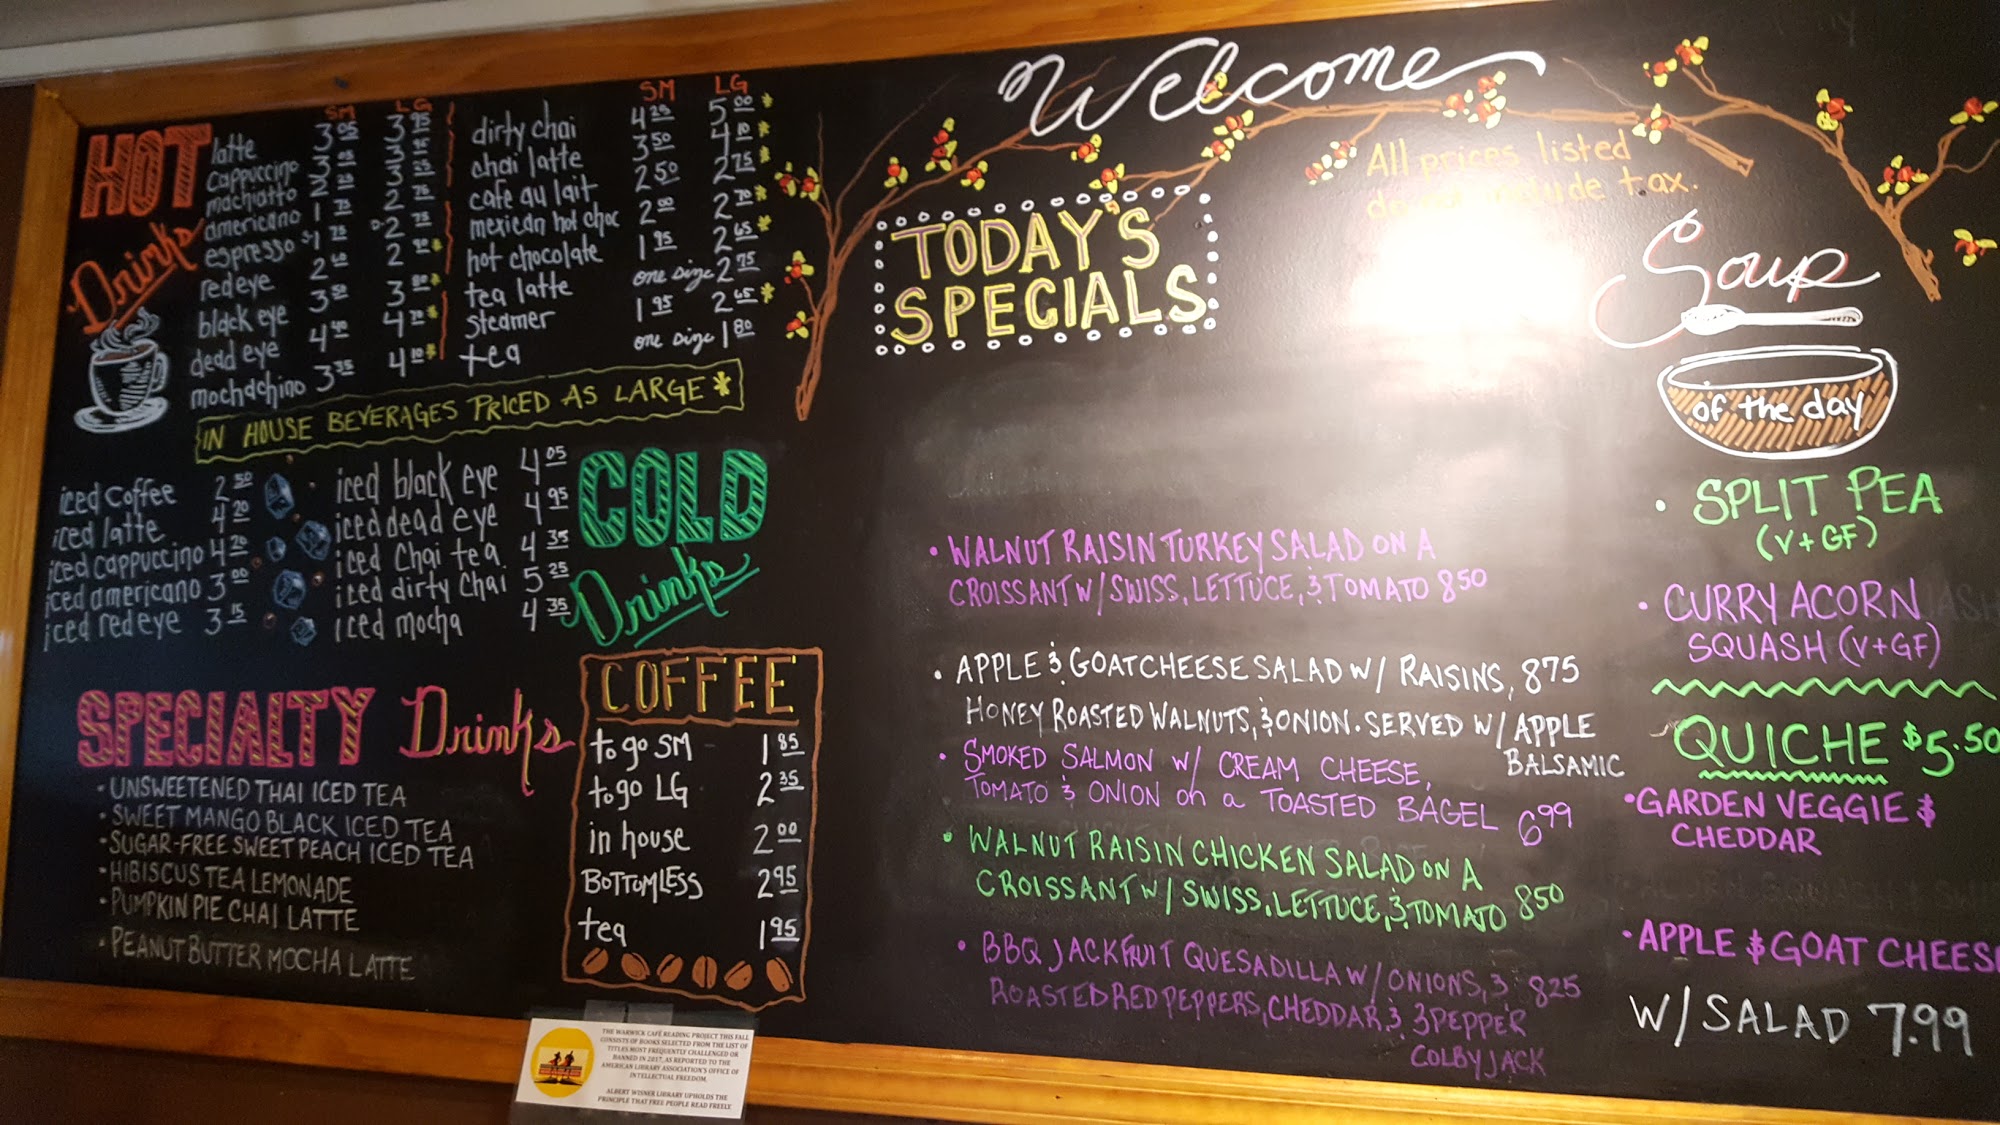 Welcome
All prices listed
do not include tax.
HOT
Drinks
SM LG
latte 3.05 3.95
cappuccino 3.05 3.95
machiatto 2.25 3.25
americano 1.75 2.75
espresso 1.75 2.75
redeye 2.40 2.90*
black eye 3.50
dead eye 4.40
mochachino 3.35 4.10*
SM LG
dirty chai 4.25 5.00*
chai latte 3.50 4.10*
cafe au lait 2.50 2.75*
mexican hot choc 2.00 2.70*
hot chocolate 1.95 2.65*
tea latte one size 2.75
steamer 1.95 2.65*
tea one size 1.80
IN HOUSE BEVERAGES PRICED AS LARGE*
COLD
Drinks
iced coffee 2.50
iced latte 4.20
iced cappuccino 4.20
iced americano 3.00
iced redeye 3.15
iced black eye 4.05
iced dead eye 4.95
iced chai tea 4.35
iced dirty chai 5.25
iced mocha 4.35
SPECIALTY Drinks
• UNSWEETENED THAI ICED TEA
• SWEET MANGO BLACK ICED TEA
• SUGAR-FREE SWEET PEACH ICED TEA
• HIBISCUS TEA LEMONADE
• PUMPKIN PIE CHAI LATTE
• PEANUT BUTTER MOCHA LATTE
COFFEE
to go SM 1.85
to go LG 2.35
in house 2.00
BOTTOMLESS 2.95
tea 1.95
TODAY'S
SPECIALS
• WALNUT RAISIN TURKEY SALAD ON A
CROISSANT W/ SWISS, LETTUCE, & TOMATO 850
• APPLE & GOAT CHEESE SALAD W/ RAISINS, 875
HONEY ROASTED WALNUTS, & ONION. SERVED W/ APPLE
BALSAMIC
• SMOKED SALMON W/ CREAM CHEESE,
TOMATO & ONION on a TOASTED BAGEL 6.99
• WALNUT RAISIN CHICKEN SALAD ON A
CROISSANT W/ SWISS, LETTUCE, & TOMATO 850
• BBQ JACKFRUIT QUESADILLA W/ ONIONS, & 825
ROASTED RED PEPPERS, CHEDDAR & 3 PEPPER
COLBY JACK
Soup
of the day
• SPLIT PEA
(V+GF)
• CURRY ACORN
SQUASH (V+GF)
QUICHE $5.50
• GARDEN VEGGIE &
CHEDDAR
• APPLE & GOAT CHEESE
W/ SALAD 7.99
THE WARWICK CAFÉ READING PROJECT THIS FALL
CONSISTS OF BOOKS SELECTED FROM THE LIST OF
TITLES MOST FREQUENTLY CHALLENGED OR
BANNED IN 2017, AS REPORTED TO THE
AMERICAN LIBRARY ASSOCIATION'S OFFICE OF
INTELLECTUAL FREEDOM.
ALBERT WISNER LIBRARY UPHOLDS THE
PRINCIPLE THAT FREE PEOPLE READ FREELY